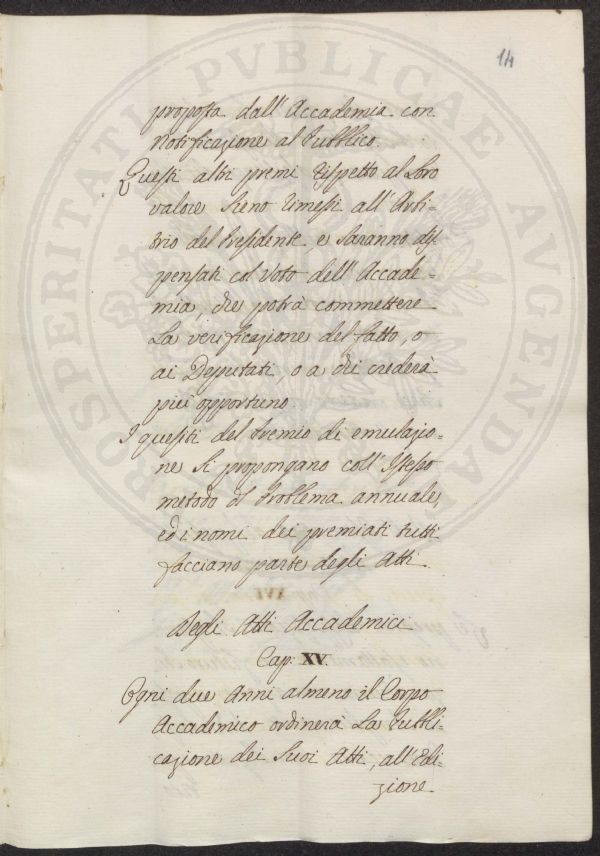 14
proposta dall'Accademia con
Notificazione al Pubblico.
Questi altri premi rispetto al Loro
valore sieno rimessi all'Arbi-
trio del Presidente e saranno dis-
pensati col Voto dell'Accade-
mia, che potrà commettere
La verificazione del fatto, o
ai Deputati, o a chi crederà
più opportuno.
I quesiti del Premio di emulazio-
ne si propongano coll'Istesso
metodo del Problema annuale,
ed i nomi dei premiati tutti
facciano parte degli Atti.
Degli Atti Accademici
Cap. XV.
Ogni due Anni almeno il Corpo
Accademico ordinerà La Pubbli-
cazione dei Suoi Atti, all'Edi-
zione
PROSPERITATI PVBLICAE AVGENDAE